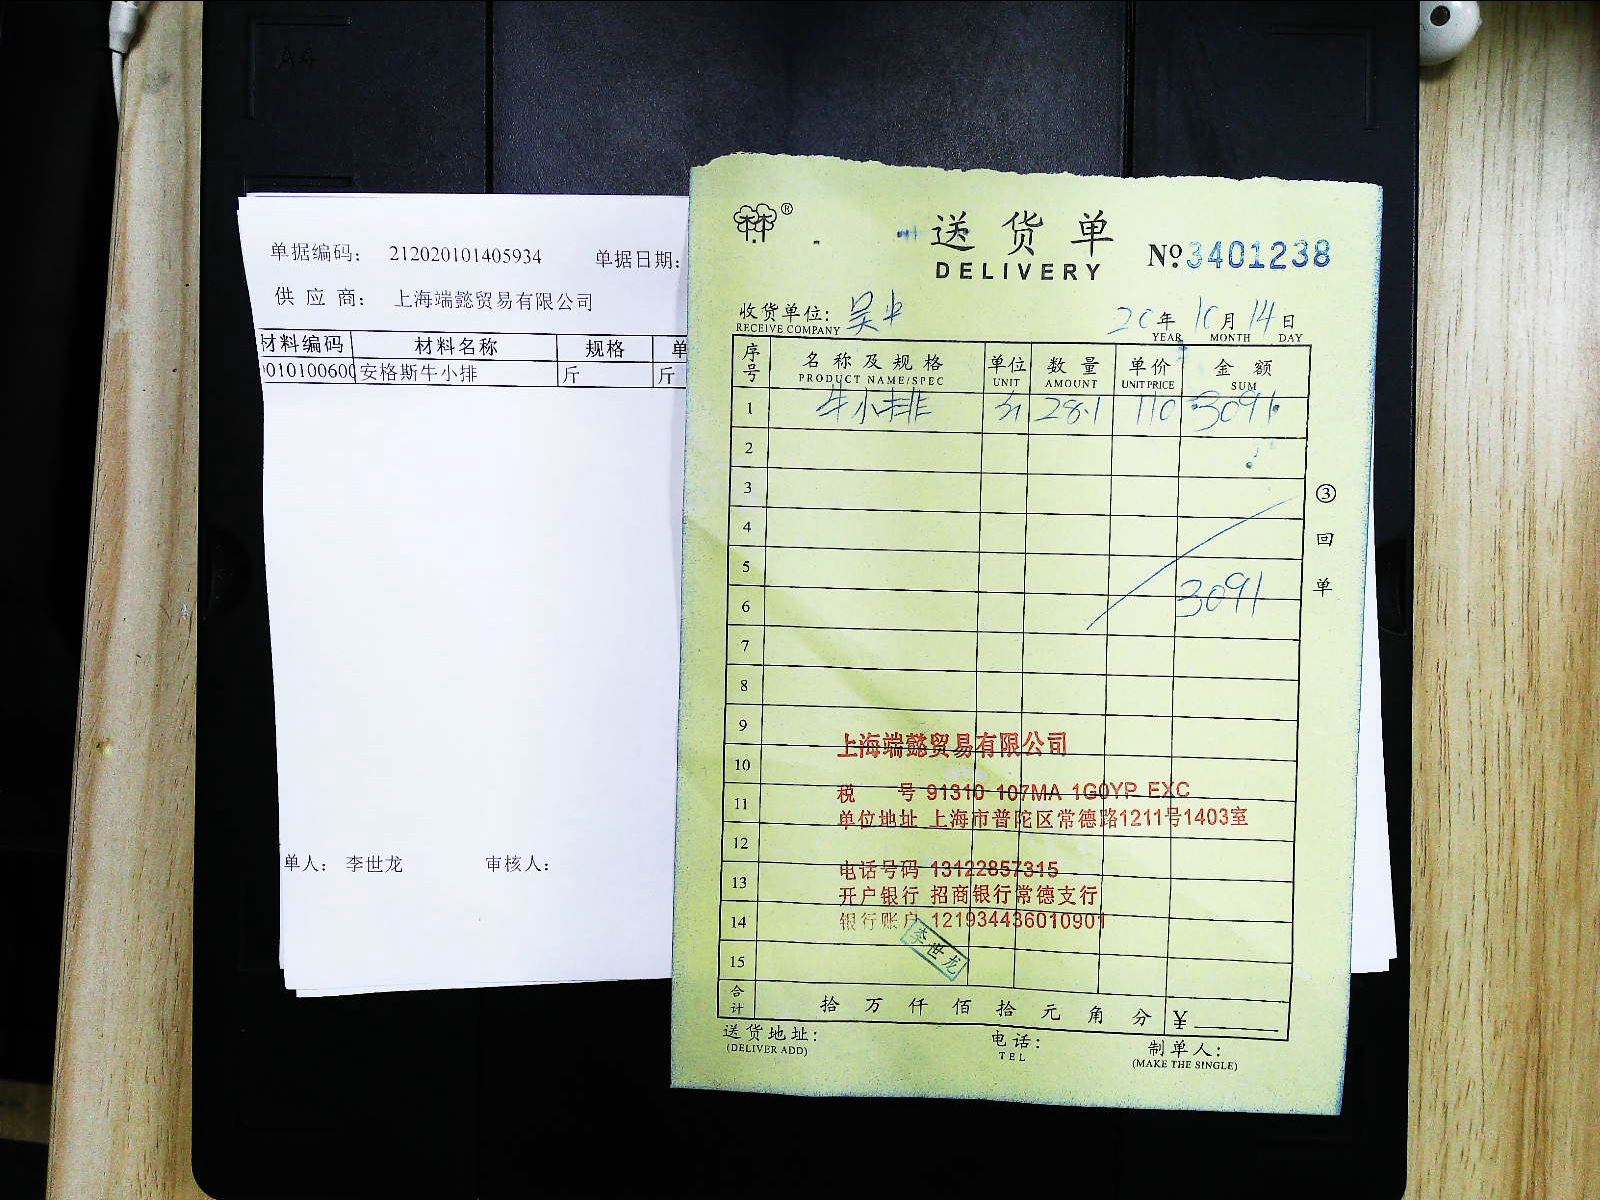 单据编码： 212020101405934 单据日期:
供 应 商： 上海端懿贸易有限公司
材料编码 材料名称 规格 单
010100600 安格斯牛小排 斤 斤
单人： 李世龙 审核人：
®
送货单
DELIVERY
№ 3401238
收货单位: 吴中
RECEIVE COMPANY
20年10月14日
YEAR MONTH DAY
序号 名称及规格 单位 数量 单价 金额
PRODUCT NAME/SPEC UNIT AMOUNT UNIT PRICE SUM
1 牛小排 斤 28.1 110 3091
2
3
4
5
6 3091
7
8
9
10
11
12
13
14
15
③回单
上海端懿贸易有限公司
税 号 91310 107MA 1G0YP EXC
单位地址 上海市普陀区常德路1211号1403室
电话号码 13122857315
开户银行 招商银行常德支行
银行账户 121934436010901
李世龙
合计 拾 万 仟 佰 拾 元 角 分 ¥
送货地址: 电话: 制单人:
(DELIVER ADD) TEL (MAKE THE SINGLE)